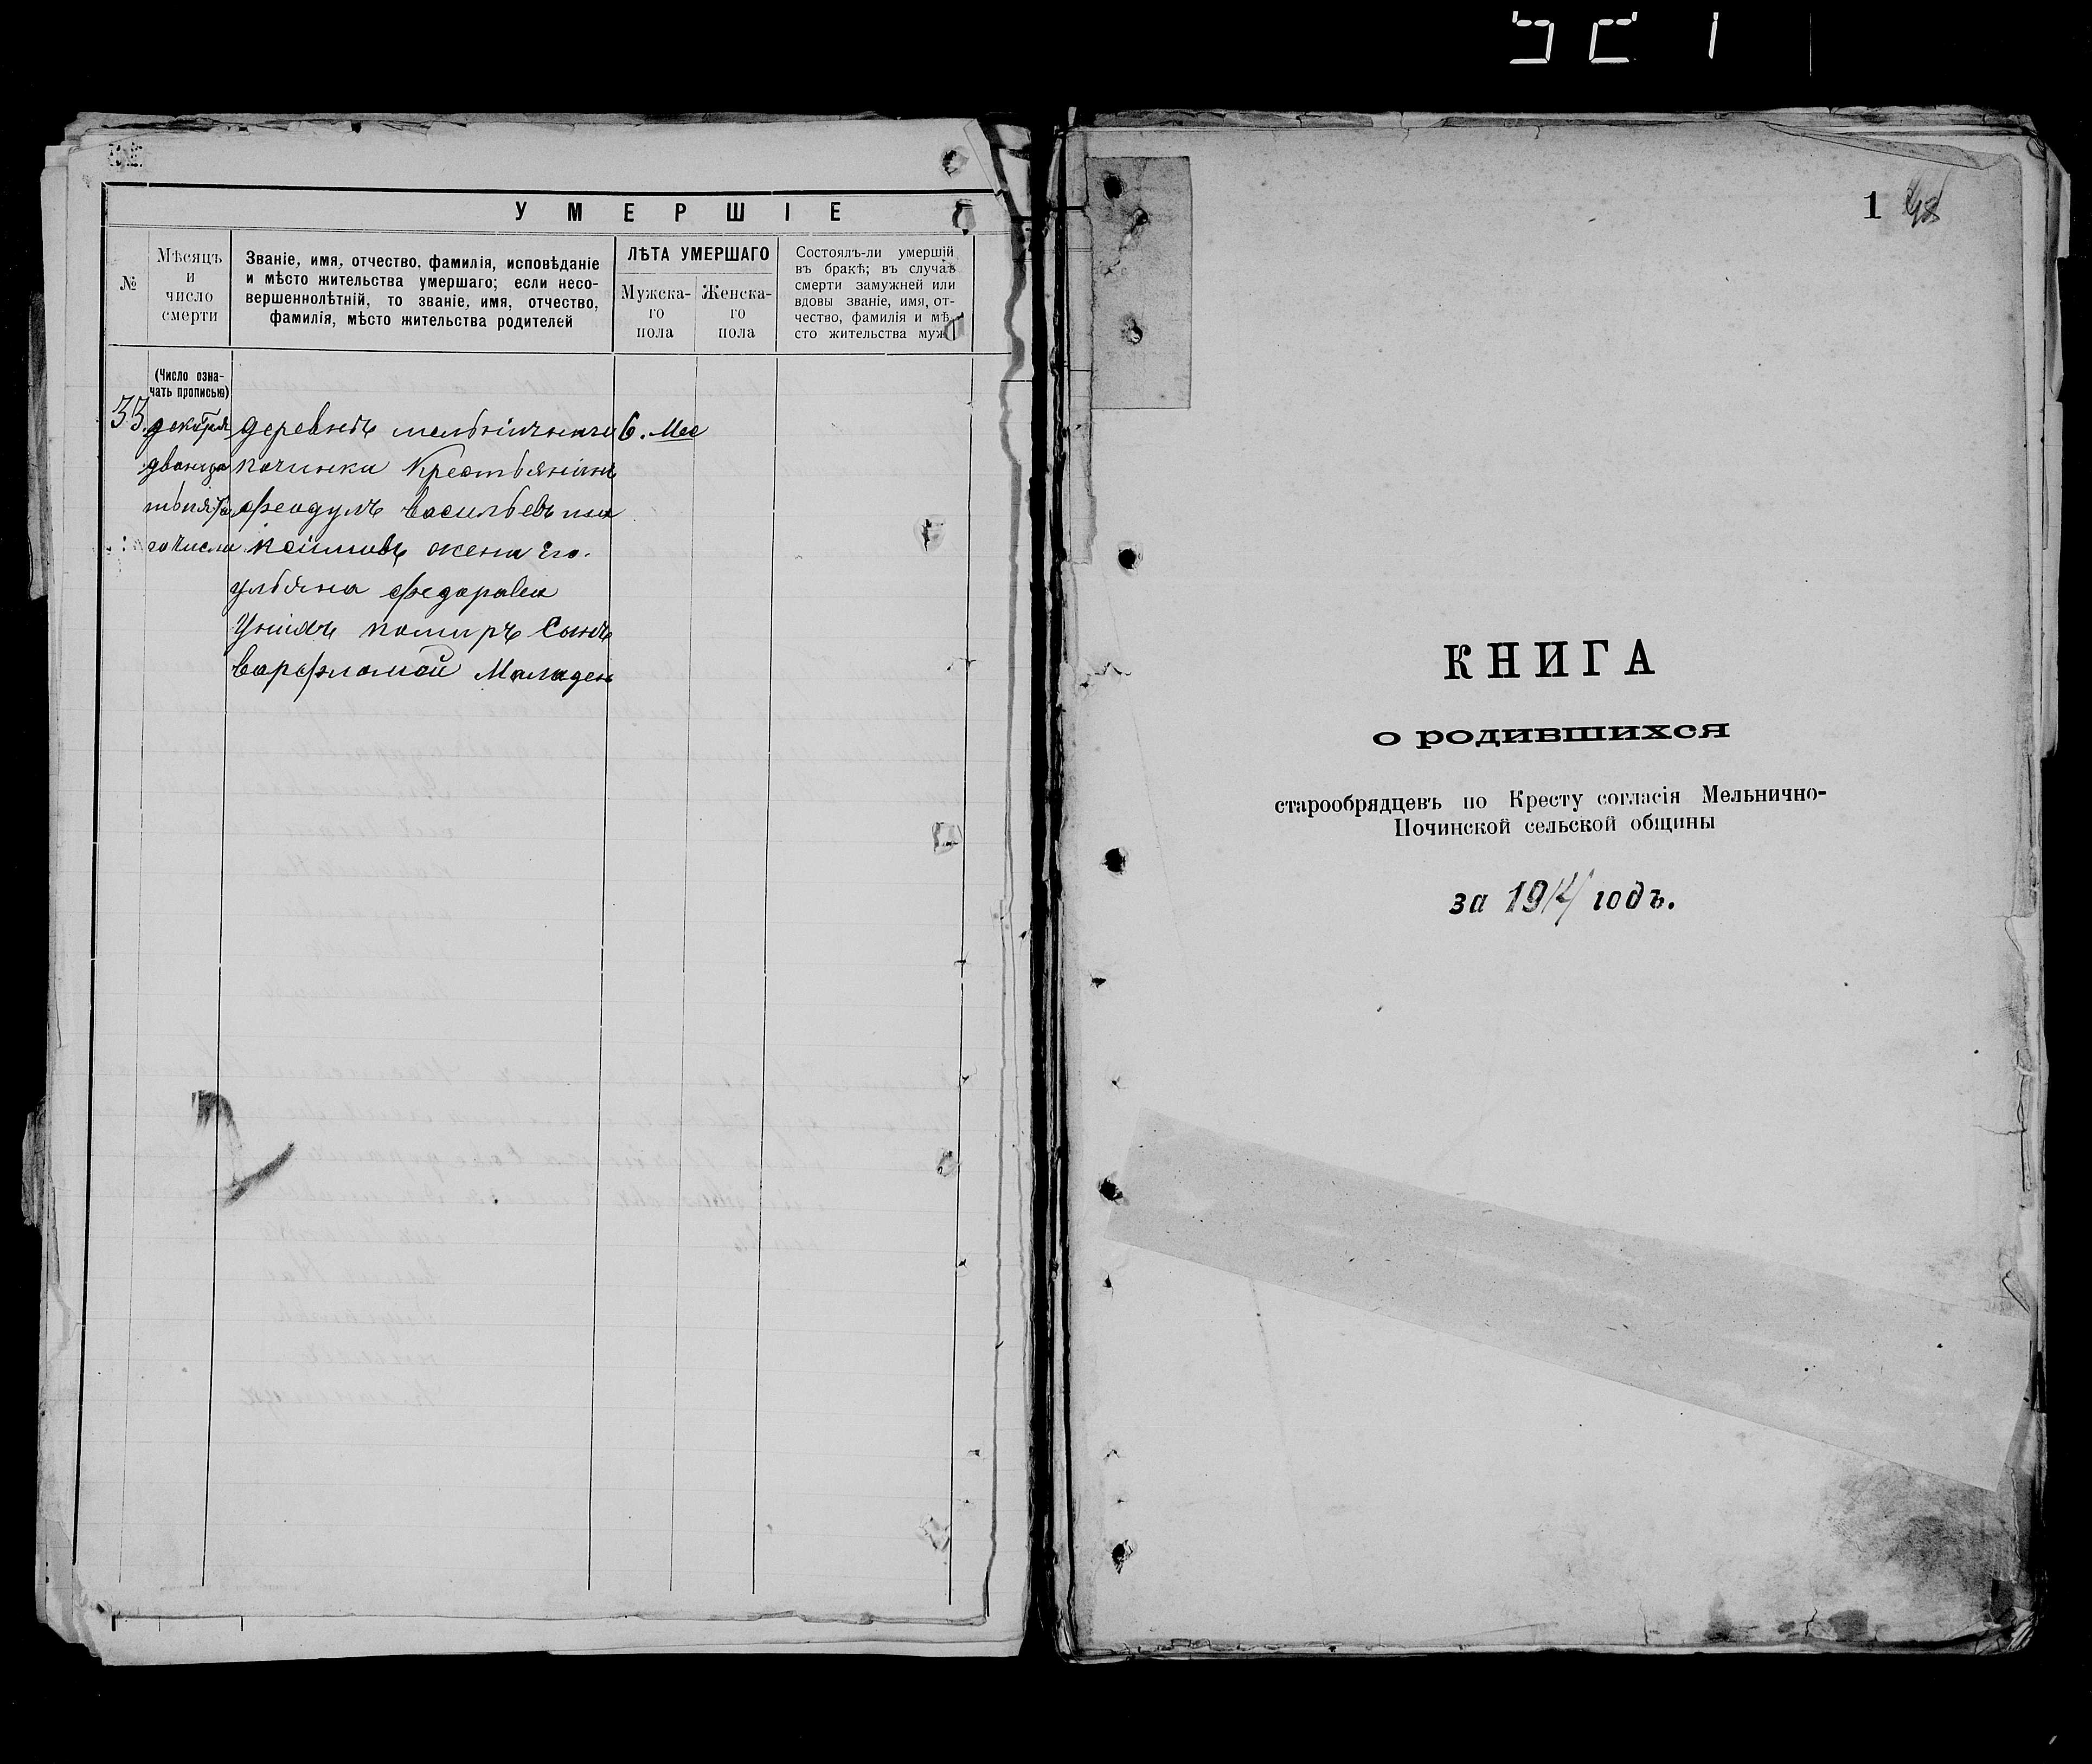 УМЕРШІЕ
№
Мѣсяцъ
и
число
смерти
Званіе, имя, отчество, фамилія, исповѣданіе
и мѣсто жительства умершаго; если несо-
вершеннолѣтній, то званіе, имя, отчество,
фамилія, мѣсто жительства родителей
ЛѢТА УМЕРШАГО
Мужска-
го
пола
Женска-
го
пола
Состоялъ-ли умершій
въ бракѣ; въ случаѣ
смерти замужней или
вдовы званіе, имя, от-
чество, фамилія и мѣ-
сто жительства муж
(Число озна-
чать прописью)
33
декабря
дванца
тьпято
го числа
деревнѣ
починка Крестьянинъ
феодулъ васильевъ
жена Его.
ульяна федаровна
Унихъ помиръ Сынъ
варфламей Младень
6. Мес
1
КНИГА
о родившихся
старообрядцевъ по Кресту согласія Мельнично-
Починской сельской общины
за 19 годъ.